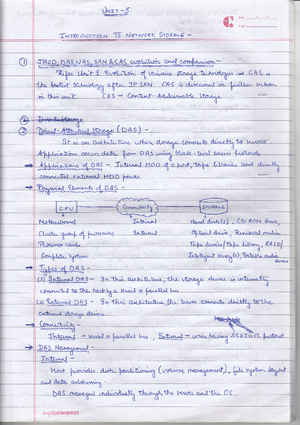 UNIT-5
INTRODUCTION TO NETWORK STORAGE -
① JBOD, DAS, NAS, SAN & CAS evolution and comparison -
Refer Unit 1 Evolution of various storage technologies. CAS is
the latest technology after IP SAN. CAS is discussed in further
in this unit. CAS → Content Addressable Storage
② Direct Attached Storage (DAS) -
It is an architecture where storage connects directly to servers.
Applications access data from DAS using block-level access protocols
→ Applications of DAS - Internal HDD of a host, tape libraries and directly
connected external HDD packs
→ Physical Elements of DAS -
CPU Connectivity STORAGE
Motherboard Internal Hard disk(s), CD-ROM drive,
Cluster group of processors External Optical device, Removable
Processor cards Tape device / Tape library, RAID/
Complete system Intelligent array(s), Portable
→ Types of DAS -
(i) Internal DAS - In this architecture, the storage device is internally
connected to the host by a serial or parallel bus
(ii) External DAS - In this architecture, the server connects directly to the
external storage device
→ Connectivity -
Internal → serial or parallel bus, External →
→ DAS Management -
Internal -
Host provides disk partitioning (volume management), file system layout
and data addressing.
DAS managed individually through the server and the OS.
mycompanion